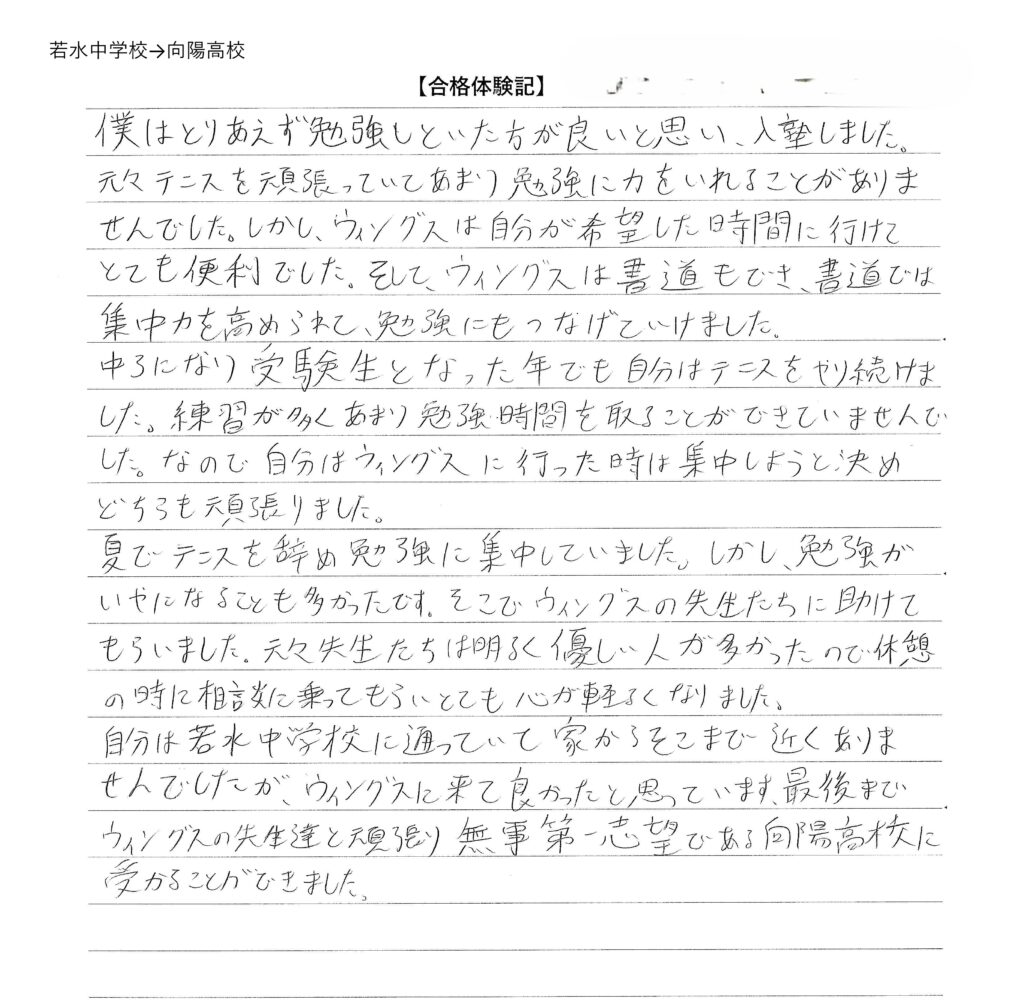 若水中学校→向陽高校
【合格体験記】
僕はとりあえず勉強しといた方が良いと思い、入塾しました。
元々テニスを頑張っていてあまり勉強に力をいれることがありま
せんでした。しかし、ウィングスは自分が希望した時間に行けて
とても便利でした。そして、ウィングスは書道もでき、書道では
集中力を高められて、勉強にもつなげていけました。
中3になり受験生となった年でも自分はテニスをやり続けま
した。練習が多くあまり勉強時間を取ることができていませんで
した。なので自分はウィングスに行った時は集中しようと決め
どちらも頑張りました。
夏でテニスを辞め勉強に集中していました。しかし、勉強が
いやになることも多かったです。そこでウィングスの先生たちに助けて
もらいました。元々先生たちは明るく優しい人が多かったので休憩
の時に相談に乗ってもらいとても心が軽くなりました。
自分は若水中学校に通っていて家からそこまで近くありま
せんでしたが、ウィングスに来て良かったと思っています。最後まで
ウィングスの先生達と頑張り無事第一志望である向陽高校に
受かることができました。